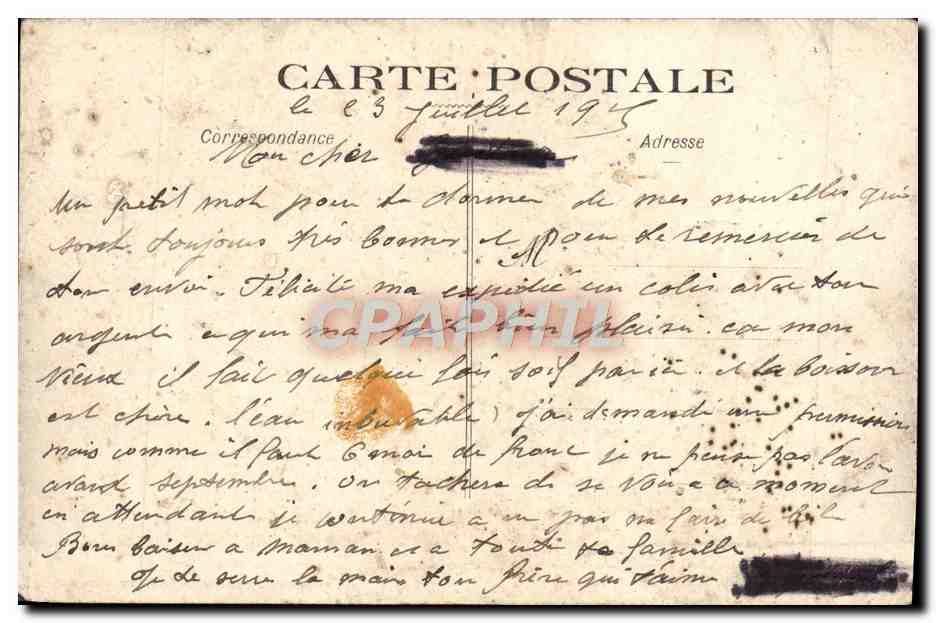 CARTE POSTALE
le 23 Juillet 1915
Correspondance
Adresse
Mon cher
Un petit mot pour te donner de mes nouvelles qui
sont toujours très bonnes et pour te remercier de
ton envoi. Félicité ma expédié un colis avec ton
argent a qui ma fait bien plaisir. ca mon
vieux il fait quelque fois soif par ici et la boisson
est chère. l'eau inbuvable) j'ai demandé une permission
mais comme il faut 6 moi de front je ne pense pas lavoir
avant septembre. On tachera de se voir a ce moment
en attendant je continue a ne pas me faire de bile
Bons baiser a maman et a toute ta famille
Je te serre la main ton frère qui t'aime
CPAPHIL